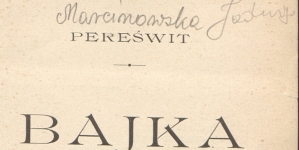 Marcinowska Jadwiga
PEREŚWIT
BAJKA